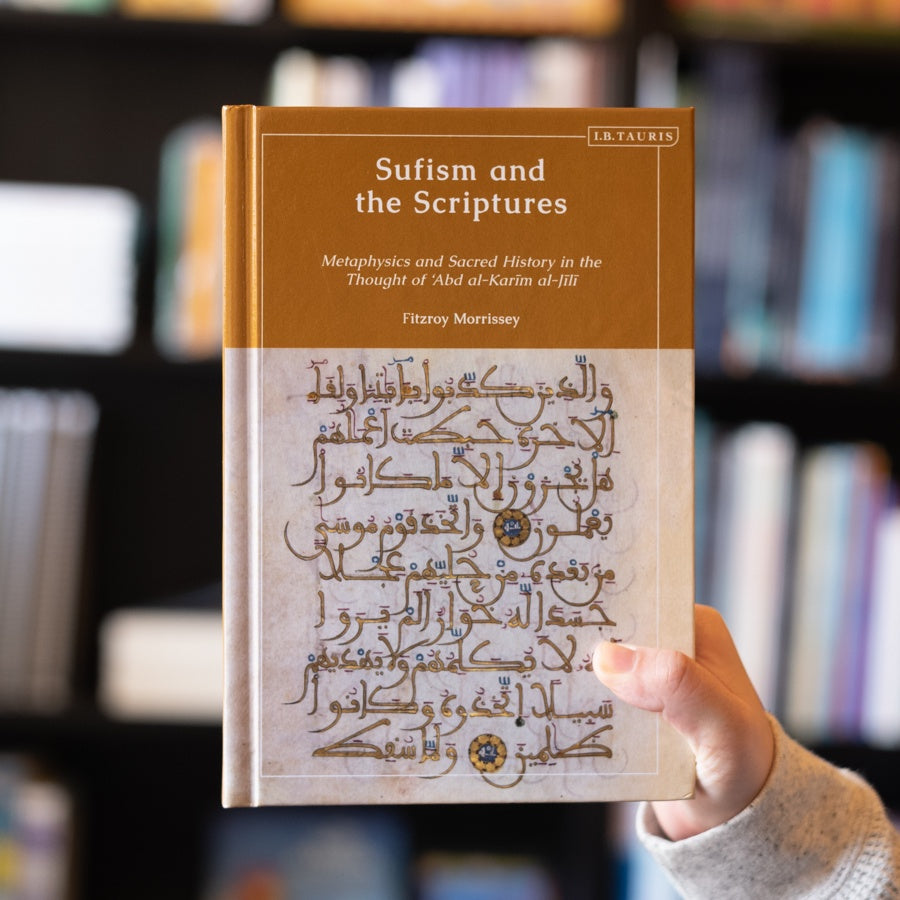 I.B. TAURIS
Sufism and
the Scriptures
Metaphysics and Sacred History in the
Thought of ‘Abd al-Karīm al-Jīlī
Fitzroy Morrissey
والذين كذبوا بايتنا ولقا
الاخرة حبطت اعملهم
هل يجزون الا ما كانوا
يعملون واتخذ قوم موسى
من بعده من حليهم عجلا
جسدا له خوار الم يروا
لا يكلمهم ولا يهديهم
سبيلا اتخذوه وكانوا
ظلمين ولما سقط